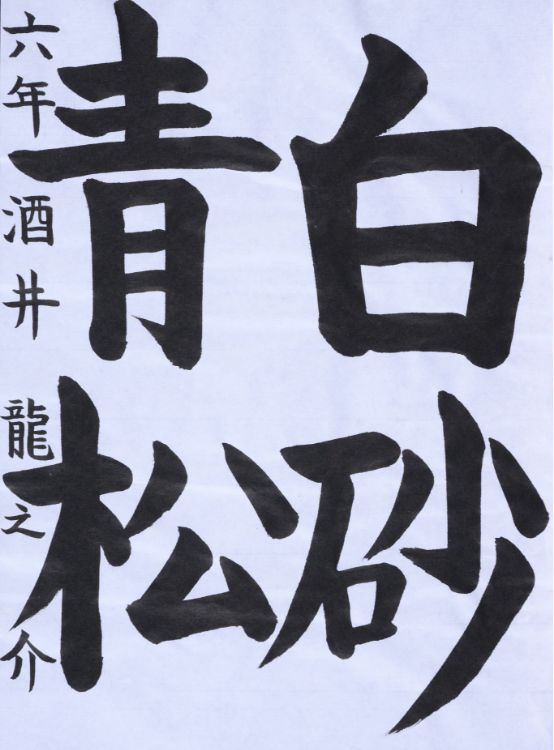 白砂
青松
六年 酒井 龍之介